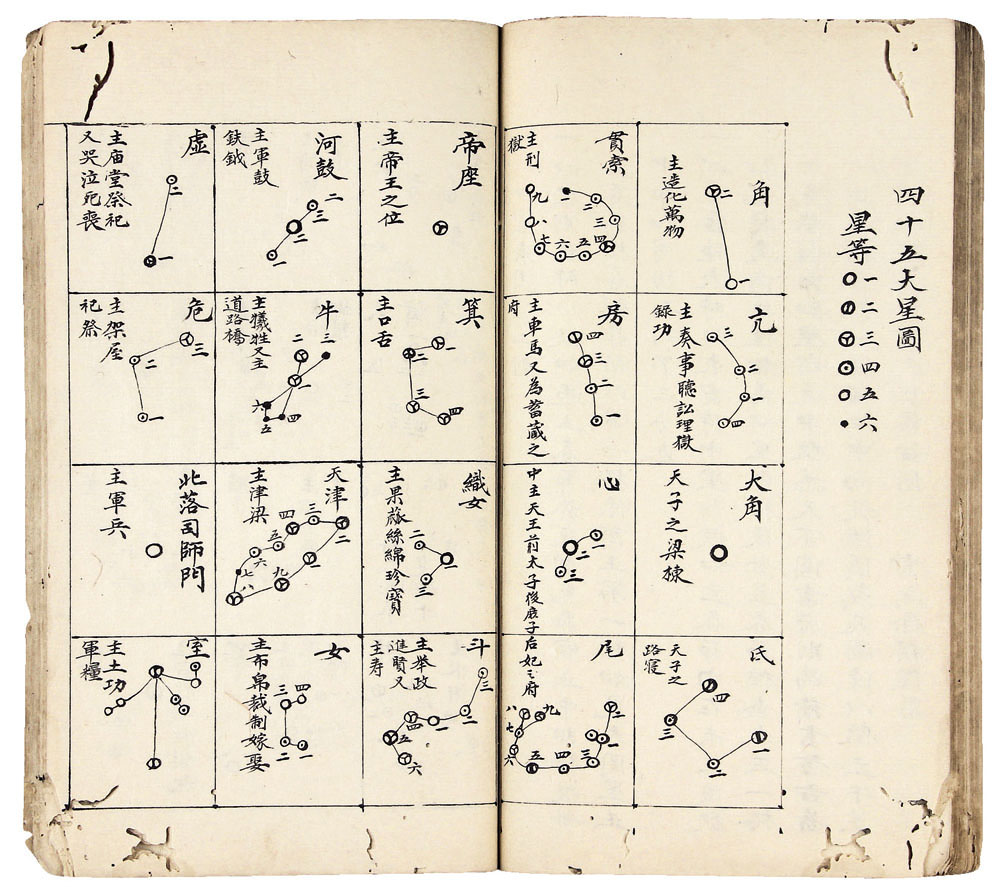 四十五大星圖
星等
一
二
三
四
五
六
角
主造化萬物
二
一
亢
主奏事聽訟理獄
録功
三
二
一
四
大角
天子之梁棟
氐
天子之
路寢
四
三
二
一
貫索
主刑
獄
九
八
七
六
五
四
三
二
一
房
主車馬又為蓄藏之
府
四
三
二
一
心
中主天王前太子後庶子
一
二
三
尾
后妃之府
二
一
三
四
五
六
七
八
九
帝座
主帝王之位
箕
主口舌
一
二
三
四
織女
主果蓏絲綿珍寶
二
一
三
斗
主舉政
進賢又
主寿
三
二
一
四
五
六
河鼓
主軍鼓
鈇鉞
二
三
二
一
牛
主犧牲又主
道路橋
三
二
一
六
五
天津
主津梁
三
四
五
六
七
八
九
一
二
女
主布帛裁制嫁娶
四
三
二
一
虛
主庙堂祭祀
又哭泣死喪
二
一
危
主架屋
祀祭
三
二
一
北落司師門
主軍兵
室
主土功
軍糧